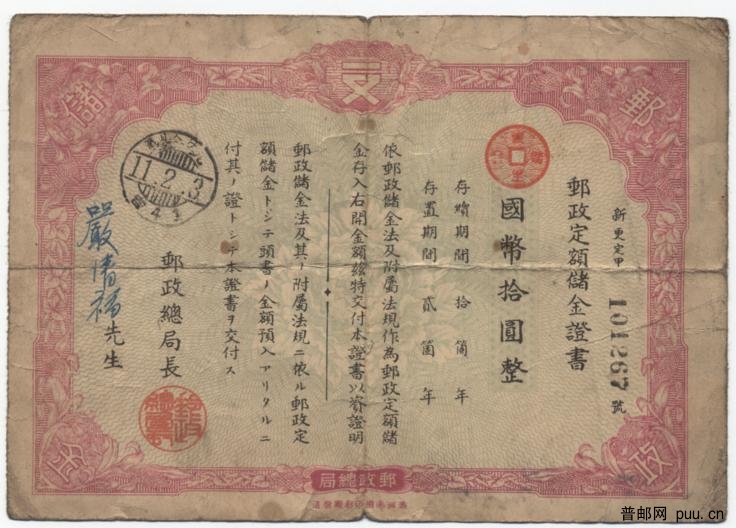 郵政儲金
新更定甲 101267 號
郵政定額儲金證書
國幣拾圓整
存續期間 拾箇年
存置期間 貳箇年
依郵政儲金法及附屬法規作為郵政定額儲
金存入右開金額茲特交付本證書以資證明
郵政儲金法及其ノ附屬法規ニ依ル郵政定
額儲金トシテ頭書ノ金額預入アリタルニ
付其ノ證トシテ本證書ヲ交付ス
郵政總局長
嚴清福先生
11.2.3
郵政總局
普邮网 puu.cn